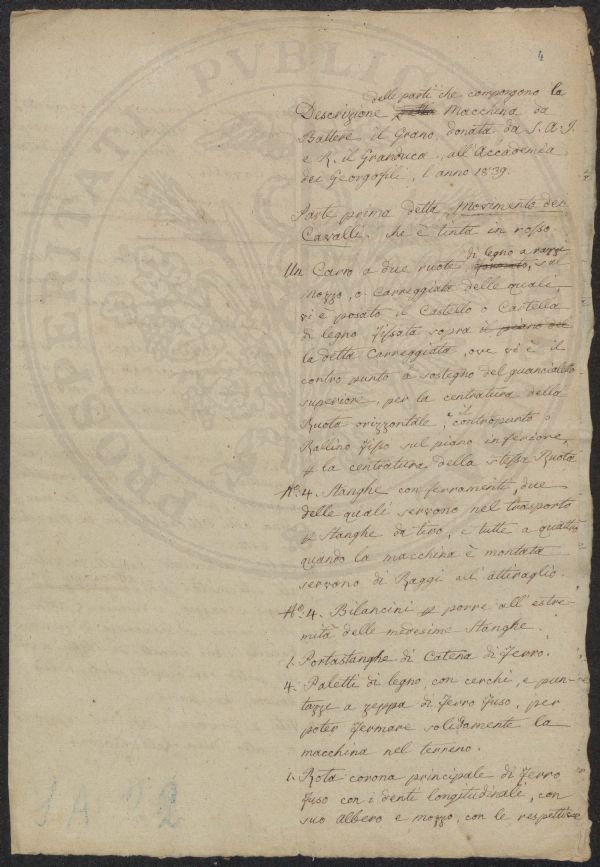 4
delle parti che compongono la
Descrizione della Macchina da
Battere il Grano donata da S. A. I.
e R. il Granduca, all'Accademia
dei Georgofili, l'anno 1839.
Parte prima detta Movimento dei
Cavalli. che è tinta in rosso
di legno a razze
Un Carro a due ruote, sul
mozzo, o Carreggiata delle quali,
vi è posato il Castello o Cartella
di legno fissata sopra il piano del
la detta Carreggiata, ove vi è il
contro punto a sostegno del guancialetto
superiore, per la centratura della
Ruota orizzontale, e il contropunto o
Rallino fisso sul piano inferiore,
p la centratura della stessa Ruota
No. 4. Stanghe con ferramenti, due
delle quali servono nel trasporto
p Stanghe da tiro, e tutte a quattro
quando la macchina è montata
servono di Raggi all'attiraglio.
No. 4. Bilancini p porre all'estre-
mità delle medesime Stanghe.
1. Portastanghe di Catena di Ferro.
4. Paletti di legno, con cerchi, e pun-
tazze a zeppa di Ferro fuso, per
poter fermare solidamente la
macchina nel terreno.
1. Rota corona principale di Ferro
fuso con i denti longitudinali, con
suo albero e mozzo, con le respettive
PROSPERITATI PUBLICAE
1A 22